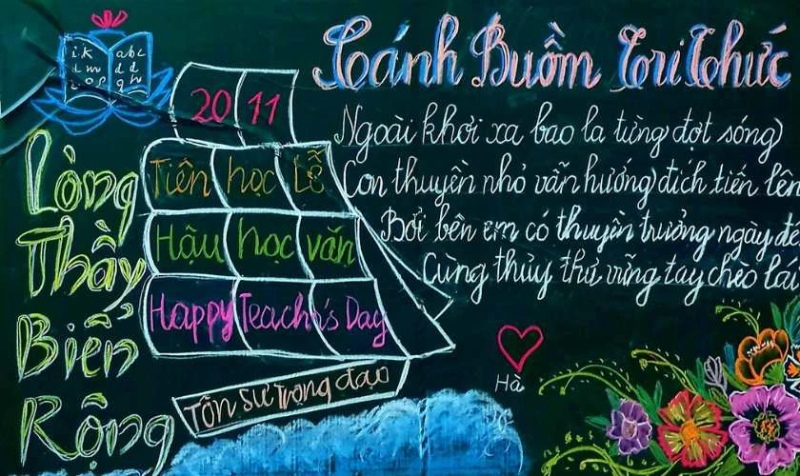 Cánh Buồm Tri Thức
ik abc
lm dd
nop qh
20 11
Tiên học Lễ
Hậu học văn
Happy Teach's Day
Tôn Sư Trọng đạo
Lòng
Thầy
Biển
Rộng
Ngoài khơi xa bao la từng đợt sóng
Con thuyền nhỏ vẫn hướng đích tiến lên
Bởi bên em có thuyền trưởng ngày đê
Cùng thủy thủ vững tay chèo lái
Hà